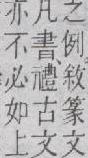 之例敘篆文
凡書禮古文
亦不必如上